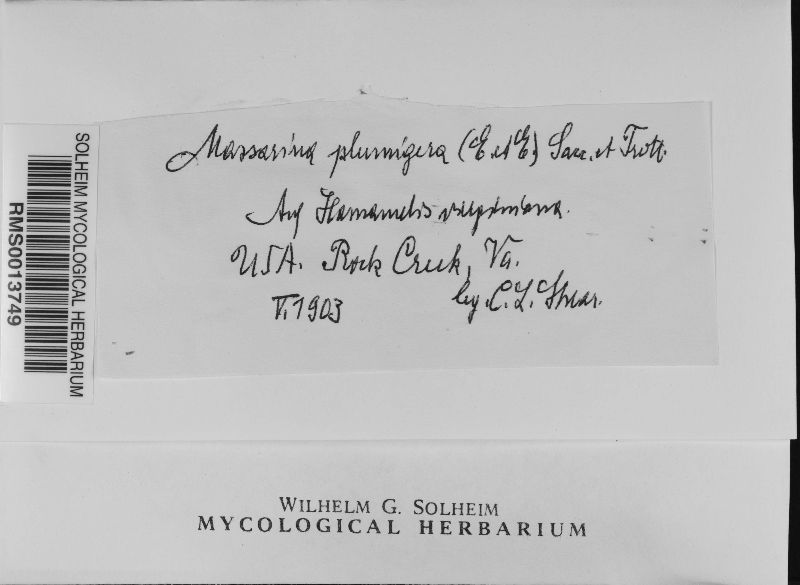 Massarina plumigera (E. et E.) Sacc. et Trott.
Auf Hamamelis virginiana.
USA. Rock Creek, Va.
V. 1903
leg. C. L. Shear.
SOLHEIM MYCOLOGICAL HERBARIUM
RMS0013749
WILHELM G. SOLHEIM
MYCOLOGICAL HERBARIUM